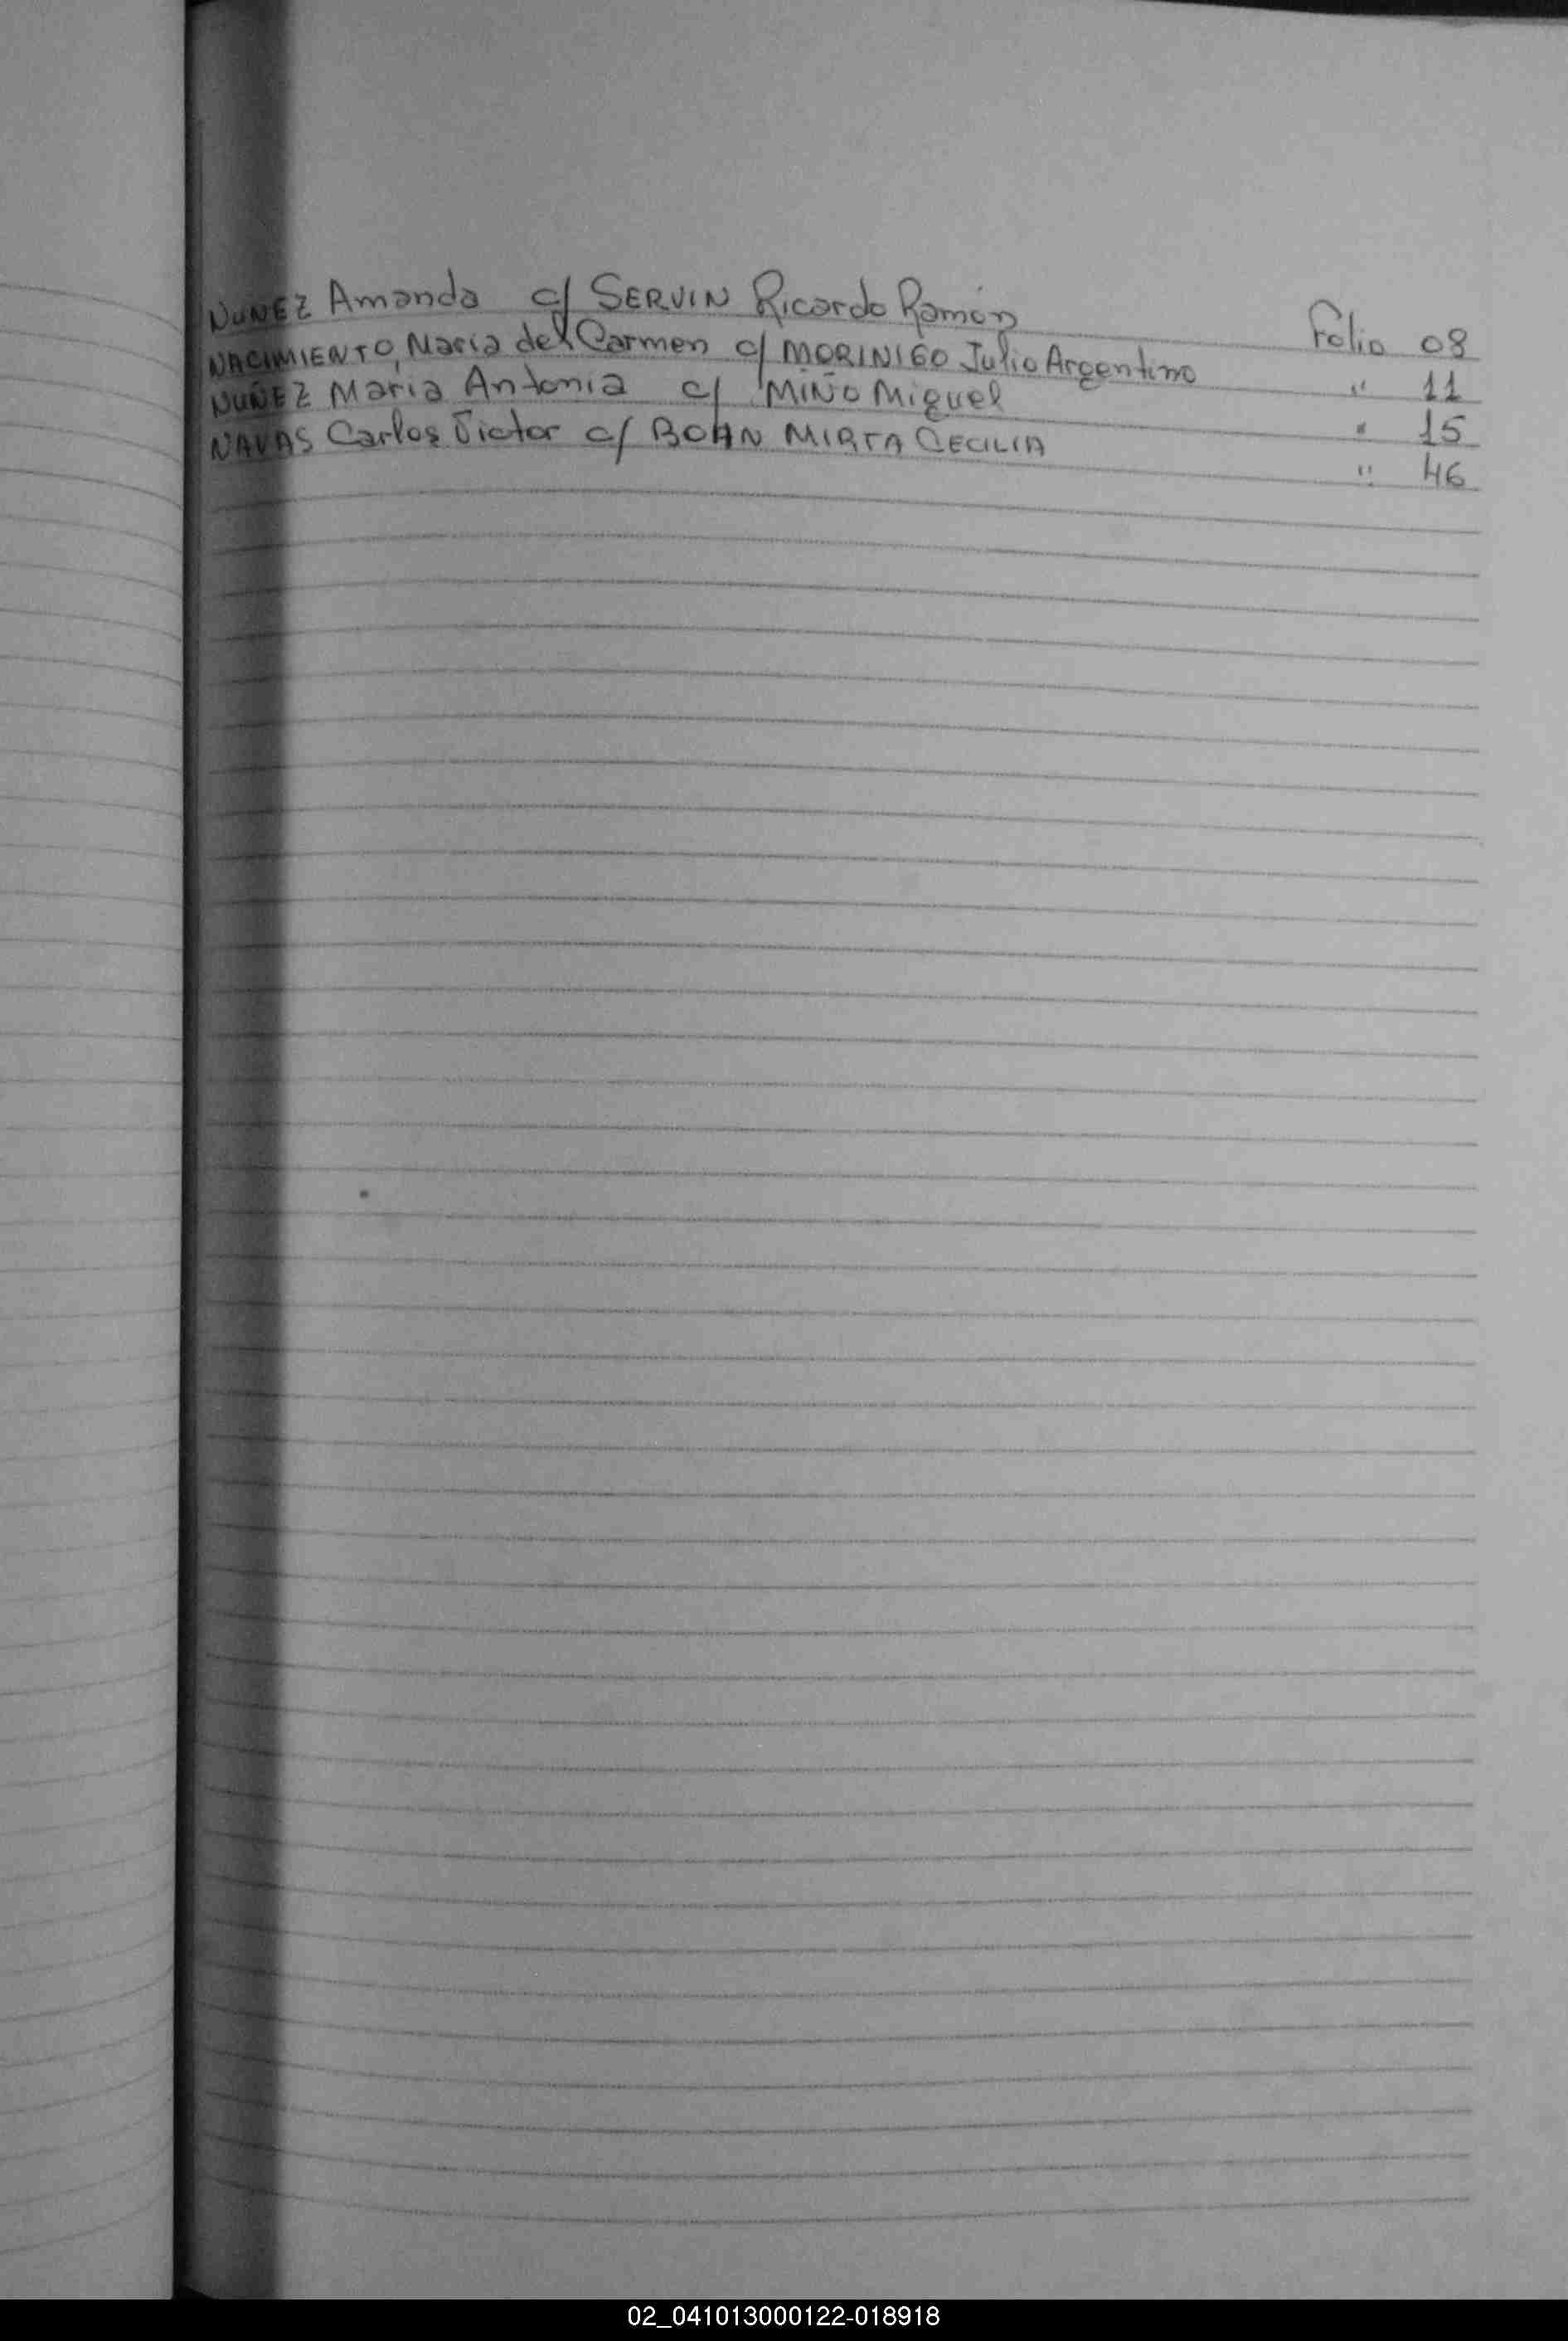 NUÑEZ Amanda c/ SERVIN Ricardo Ramón Folio 08
NACIMIENTO, Maria del Carmen c/ MORINIGO Julio Argentino " 11
NUÑEZ Maria Antonia c/ MIÑO Miguel " 15
NAVAS Carlos Victor c/ BOHN MIRTA CECILIA " 46
02_041013000122-018918